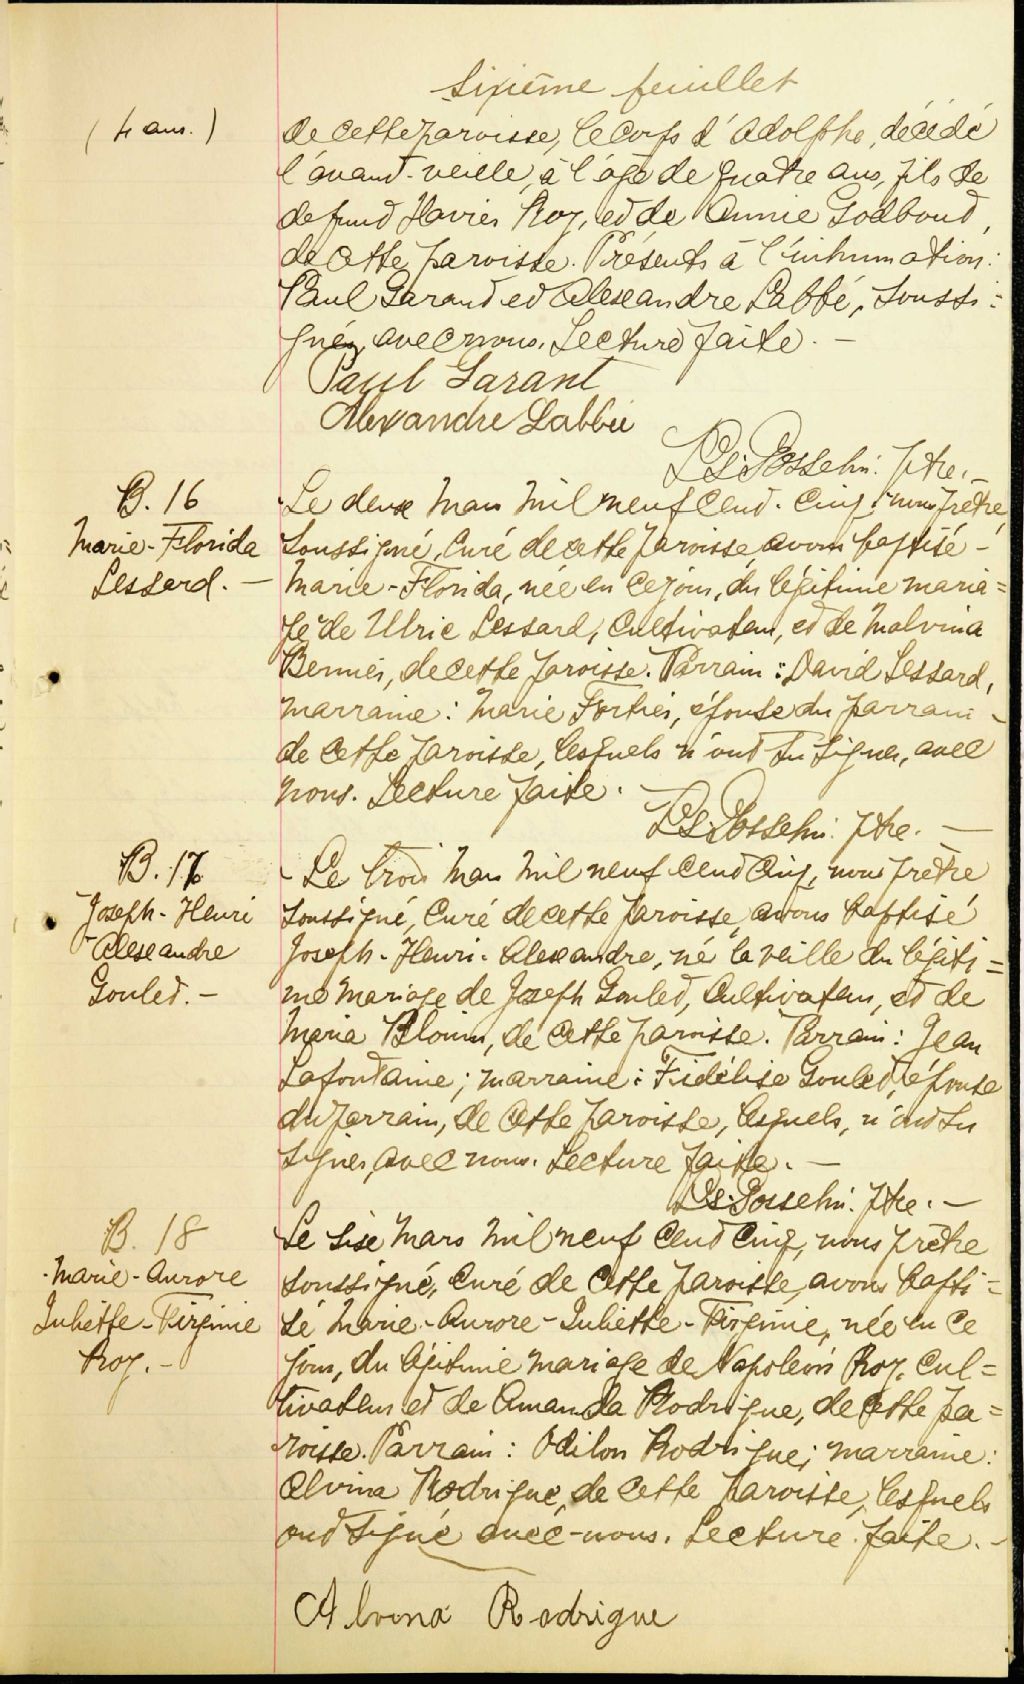 Sixième feuillet
(4 ans.)
de cette paroisse, le corps d'Adolphe, décédé
l'avant-veille, à l'âge de quatre ans, fils de
défunt Xavier Roy, et de Annie Godbout,
de cette paroisse. Présents à l'inhumation:
Paul Garant et Alexandre Labbé, soussi=
gnés avec nous. Lecture faite. -
Paul Garant
Alexandre Labbé
Ptre. -
B. 16
Marie-Florida
Lessard. -
Le deux Mars mil neuf cent-cinq, nous prêtre,
soussigné, curé de cette paroisse, avons baptisé -
Marie-Florida, née en ce jour, du légitime maria=
ge de Ulric Lessard, cultivateur, et de Malvina
Bernier, de cette paroisse. Parrain: David Lessard,
marraine: Marie Fortier, épouse du parrain -
de cette paroisse, lesquels n'ont su signer, avec
nous. Lecture faite.
Ptre. -
B. 17
Joseph-Henri
-Alexandre
Goulet. -
Le trois Mars mil neuf cent cinq, nous prêtre
soussigné, curé de cette paroisse, avons baptisé
Joseph-Henri-Alexandre, né la veille du légiti=
me mariage de Joseph Goulet, cultivateur, et de
Maria Blouin, de cette paroisse. Parrain: Jean
Lafontaine; marraine: Fidélise Goulet, épouse
du parrain, de cette paroisse, lesquels, n'ont su
signer, avec nous. Lecture faite. -
Ptre. -
B. 18
-Marie-Aurore
Juliette-Virginie
Roy. -
Le six Mars mil neuf cent cinq, nous prêtre
soussigné, curé de cette paroisse, avons bapti=
sé Marie-Aurore-Juliette-Virginie, née en ce
jour, du légitime mariage de Napoléon Roy, cul=
tivateur et de Amanda Rodrigue, de cette pa=
roisse. Parrain: Odilon Rodrigue; marraine:
Alvina Rodrigue, de cette paroisse, lesquels
ont signé avec-nous. Lecture faite. -
Alvina Rodrigue